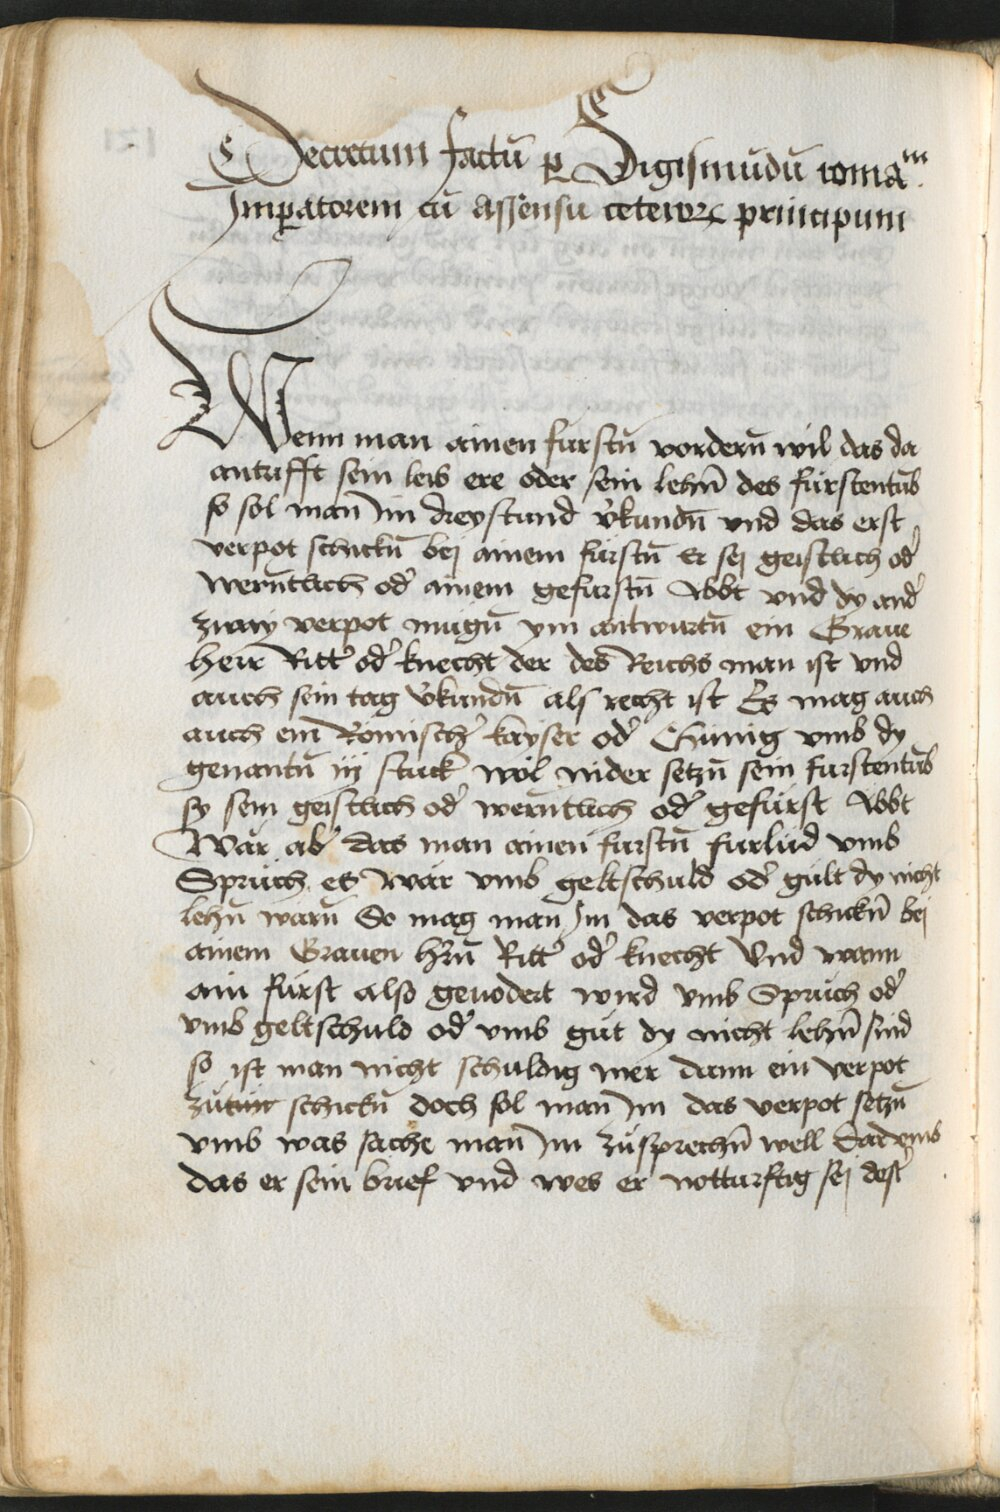 Decretum factū ꝑ Sigismūdū romā.m
Imꝑatorem cū assensu ceterorꝝ principum
Wenn man ainen furstn̄ vordern̄ wil das da
antrifft sein leib ere oder sein lehn̄ des fürstentūbs
so sol man im dreystund v̓kundn̄ vnd das erst
verpot schickn̄ bei ainem fürstn̄ Er sej geistlich od̓
werntlich od̓ ainem gefürstn̄ Abbt vnd dy and̓
zway verpot mugn̄ ym antwurtn̄ ein Graue
herr Ritt̓ od̓ knecht der des Reichs man ist vnd
auch sein tag v̓kundn̄ als recht ist Es mag auch
auch ein Römisch̓ kayser od̓ Chunig vmb dy
genantn̄ iij stuck wol nider setzn̄ sein furstentūb
sy sein geistlich od̓ werntlich od̓ gefürst Abbt
Wär ab̓ das man ainen furstn̄ furlüd vmb
Sprüch es wär vmb geltschuld od̓ gült dy nicht
lehn̄ wärn̄ So mag man Im das verpot schickn̄ bej
ainem Grauen hr̄n Ritt̓ od̓ knecht Vnd wann
ain fürst also geuodert wird vmb Sprüch od̓
vmb geltschuld od̓ vmb güt dy nicht lehn̄ sind
so ist man nicht schuldig mer dann ein verpot
schickn̄ doch sol man im das verpot setzn̄
vmb was sache man im züsprechn̄ well
das er sein brief vnd wes er notturftig sej dest̓